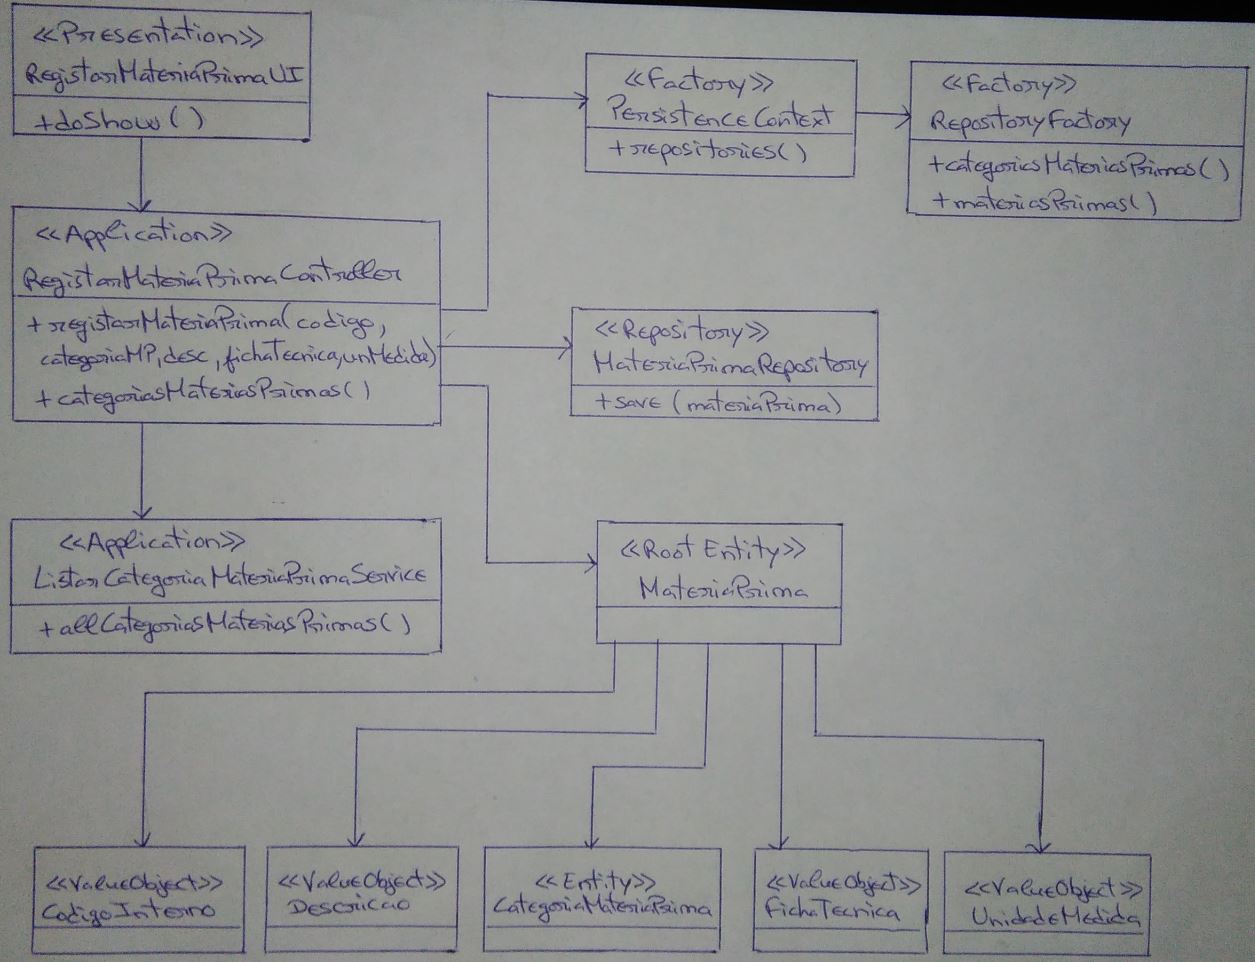 <<Presentation>>
RegistarMateriaPrimaUI
+doShow()
<<Factory>>
PersistenceContext
+repositories()
<<Factory>>
RepositoryFactory
+categoriasMateriasPrimas()
+materiasPrimas()
<<Application>>
RegistarMateriaPrimaController
+registarMateriaPrima(codigo,
categoriaMP, desc, fichaTecnica, unMedida)
+categoriasMateriasPrimas()
<<Repository>>
MateriaPrimaRepository
+save(materiaPrima)
<<Application>>
ListarCategoriaMateriaPrimaService
+allCategoriasMateriasPrimas()
<<Root Entity>>
MateriaPrima
<<ValueObject>>
CodigoInterno
<<ValueObject>>
Descricao
<<Entity>>
CategoriaMateriaPrima
<<ValueObject>>
FichaTecnica
<<ValueObject>>
UnidadeMedida